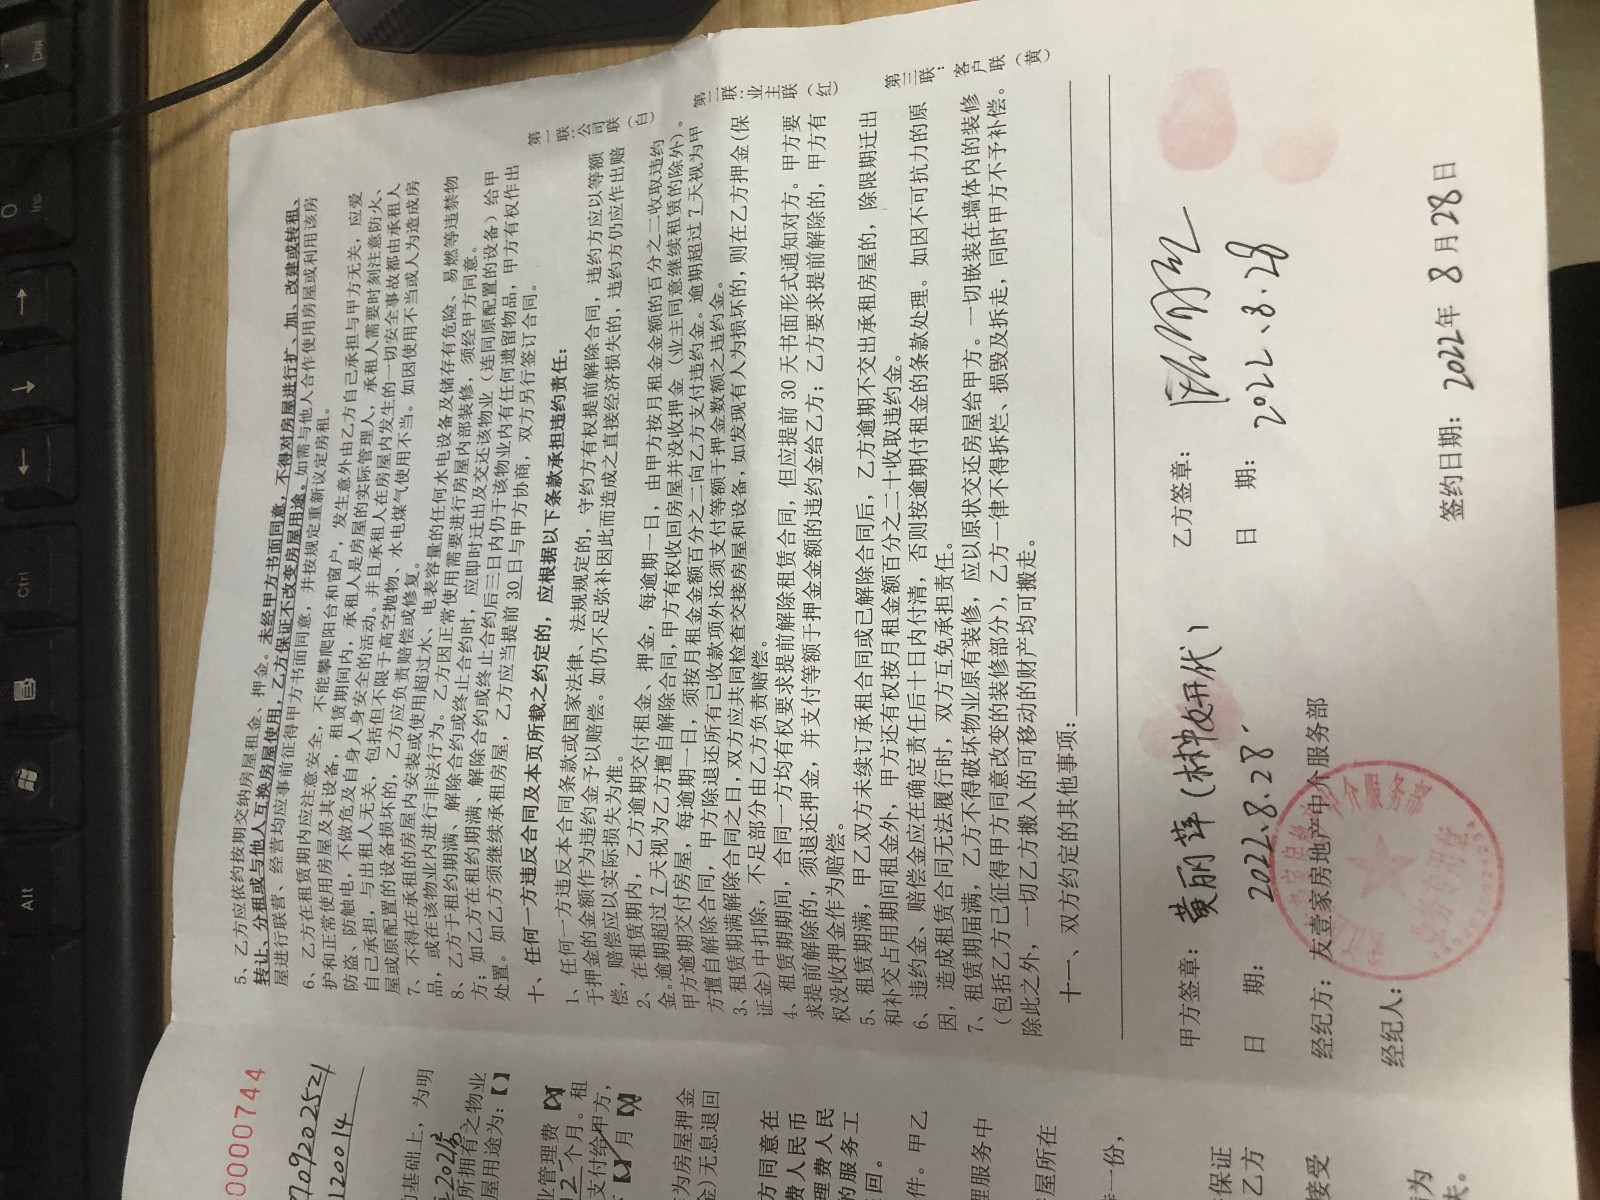 5、乙方应依约按期交纳房屋租金、押金。未经甲方书面同意，不得对房屋进行扩、加、改建或转租、
转让、分租或与他人互换房屋使用，乙方保证不改变房屋用途。如需与他人合作使用房屋或利用该房
屋进行联营、经营均应事前征得甲方书面同意，并按规定重新议定房租。
6、乙方在租赁期内应注意安全，不能攀爬阳台和窗户，发生意外由乙方自己承担与甲方无关，应爱
护和正常使用房屋及其设备，租赁期间内，承租人是房屋的实际管理人，承租人需要时刻注意防火、
防盗、防触电，不做危及自身人身安全的活动。并且承租人在房屋内发生的一切安全事故都由承租人
自己承担，与出租人无关，包括但不限于高空抛物、水电煤气使用不当。如因使用不当或人为造成房
屋或原配置的设备损坏的，乙方应负责赔偿或修复。
7、不得在承租的房屋内安装或使用超过水、电表容量的任何水电设备及储存有危险、易燃等违禁物
品，或在该物业内进行非法行为。乙方因正常使用需要进行房屋内部装修，须经甲方同意。
8、乙方于租约期满、解除合约或终止合约时，应即时迁出及交还该物业（连同原配置的设备）给甲
方；如乙方在租约期满、解除合约或终止合约后三日内仍于该物业内有任何遗留物品，甲方有权作出
处置。如乙方须继续承租房屋，乙方应当提前 30 日与甲方协商，双方另行签订合同。
十、任何一方违反合同及本页所载之约定的，应根据以下条款承担违约责任：
1、任何一方违反本合同条款或国家法律、法规规定的，守约方有权提前解除合同，违约方应以等额
于押金的金额作为违约金予以赔偿。如仍不足弥补因此而造成之直接经济损失的，违约方仍应作出赔
偿，赔偿应以实际损失为准。
2、在租赁期内，乙方逾期交付租金、押金，每逾期一日，由甲方按月租金金额的百分之二收取违约
金。逾期超过 7 天视为乙方擅自解除合同，甲方有权收回房屋并没收押金（业主同意继续租赁的除外）。
甲方逾期交付房屋，每逾期一日，须按月租金金额百分之二向乙方支付违约金。逾期超过 7 天视为甲
方擅自解除合同，甲方除退还所有已收款项外还须支付等额于押金数额之违约金。
3、租赁期满解除合同之日，双方应共同检查交接房屋和设备，如发现有人为损坏的，则在乙方押金（保
证金）中扣除，不足部分由乙方负责赔偿。
4、租赁期期间，合同一方均有权要求提前解除租赁合同，但应提前 30 天书面形式通知对方。甲方要
求提前解除的，须退还押金，并支付等额于押金金额的违约金给乙方；乙方要求提前解除的，甲方有
权没收押金作为赔偿。
5、租赁期满，甲乙双方未续订承租合同或已解除合同后，乙方逾期不交出承租房屋的，除限期迁出
和补交占用期间租金外，甲方还有权按月租金额百分之二十收取违约金。
6、违约金、赔偿金应在确定责任后十日内付清，否则按逾期付租金的条款处理。如因不可抗力的原
因，造成租赁合同无法履行时，双方互免承担责任。
7、租赁期届满，乙方不得破坏物业原有装修，应以原状交还房屋给甲方。一切嵌装在墙体内的装修
（包括乙方已征得甲方同意改变的装修部分），乙方一律不得拆烂、损毁及拆走，同时甲方不予补偿。
除此之外，一切乙方搬入的可移动的财产均可搬走。
十一、双方约定的其他事项：
甲方签章：黄丽萍（林妍代） 乙方签章：
日 期：2022.8.28 日 期：2022.8.28
经纪方：友壹家房地产中介服务部
经纪人： 签约日期：2022年 8 月 28 日
第一联：公司联（白）
第二联：业主联（红）
第三联：客户联（黄）
0000744
7092025 21
120014
基础上，为明
所拥有之物业
屋用途为：【】
业管理费
12 个月。租
支付给甲方，
月
为房屋押金
金）无息退回
方同意在
费人民币
理费人民
的服务工
回。
件。甲乙
理服务中
屋所在
一份，
保证
乙方
接受
为
Alt
Ctrl
Ins
Del
0